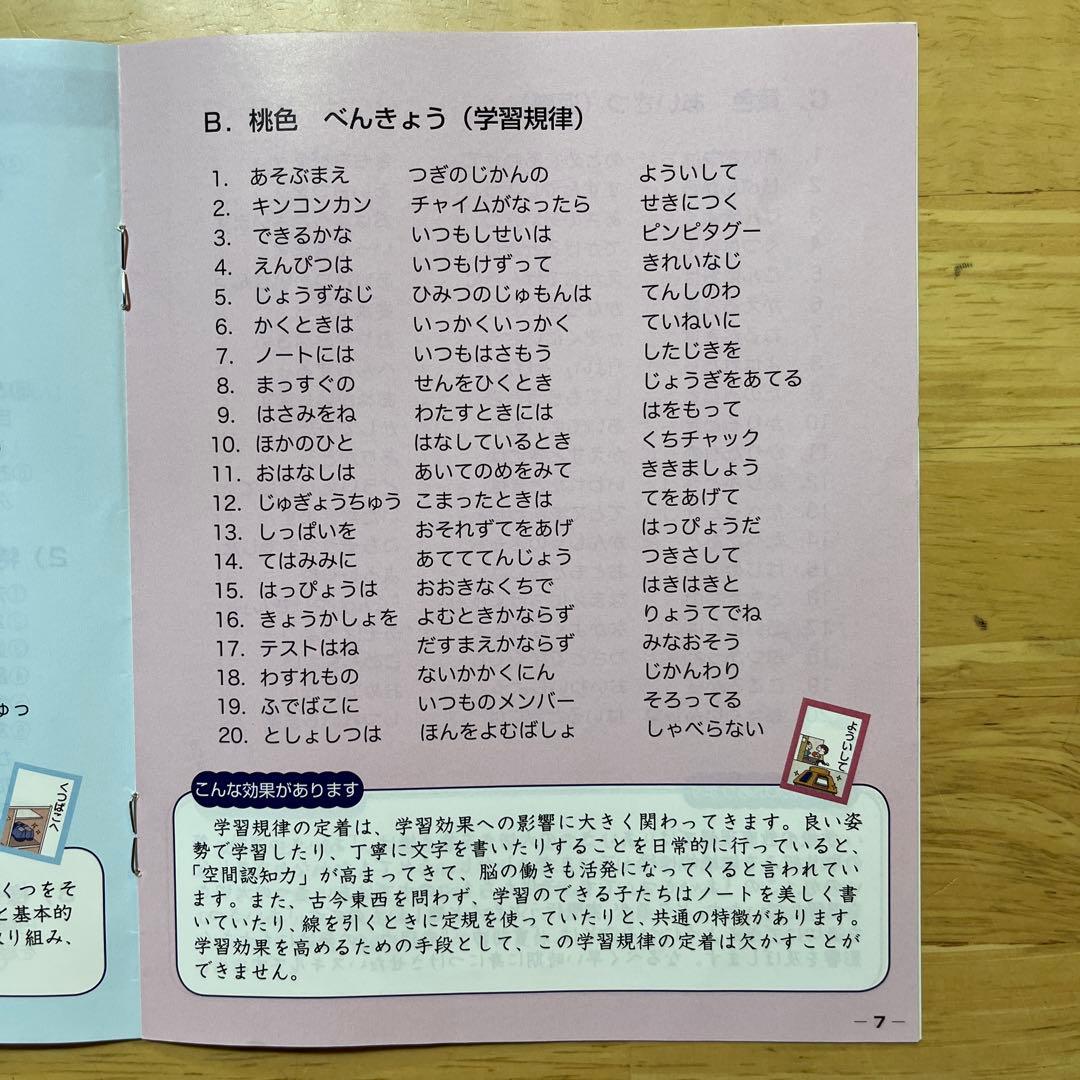 B．桃色　べんきょう（学習規律）
1．あそぶまえ　つぎのじかんの　よういして
2．キンコンカン　チャイムがなったら　せきにつく
3．できるかな　いつもしせいは　ピンピタグー
4．えんぴつは　いつもけずって　きれいなじ
5．じょうずなじ　ひみつのじゅもんは　てんしのわ
6．かくときは　いっかくいっかく　ていねいに
7．ノートには　いつもはさもう　したじきを
8．まっすぐの　せんをひくとき　じょうぎをあてる
9．はさみをね　わたすときには　はをもって
10．ほかのひと　はなしているとき　くちチャック
11．おはなしは　あいてのめをみて　ききましょう
12．じゅぎょうちゅう　こまったときは　てをあげて
13．しっぱいを　おそれずてをあげ　はっぴょうだ
14．てはみみに　あてててんじょう　つきさして
15．はっぴょうは　おおきなくちで　はきはきと
16．きょうかしょを　よむときかならず　りょうてでね
17．テストはね　だすまえかならず　みなおそう
18．わすれもの　ないかかくにん　じかんわり
19．ふでばこに　いつものメンバー　そろってる
20．としょしつは　ほんをよむばしょ　しゃべらない
よういして
こんな効果があります
学習規律の定着は、学習効果への影響に大きく関わってきます。良い姿
勢で学習したり、丁寧に文字を書いたりすることを日常的に行っていると、
「空間認知力」が高まってきて、脳の働きも活発になってくると言われてい
ます。また、古今東西を問わず、学習のできる子たちはノートを美しく書
いていたり、線を引くときに定規を使っていたりと、共通の特徴があります。
学習効果を高めるための手段として、この学習規律の定着は欠かすことが
できません。
― 7 ―
ゅっ
くつばこへ
くつをそ
と基本的
取り組み、